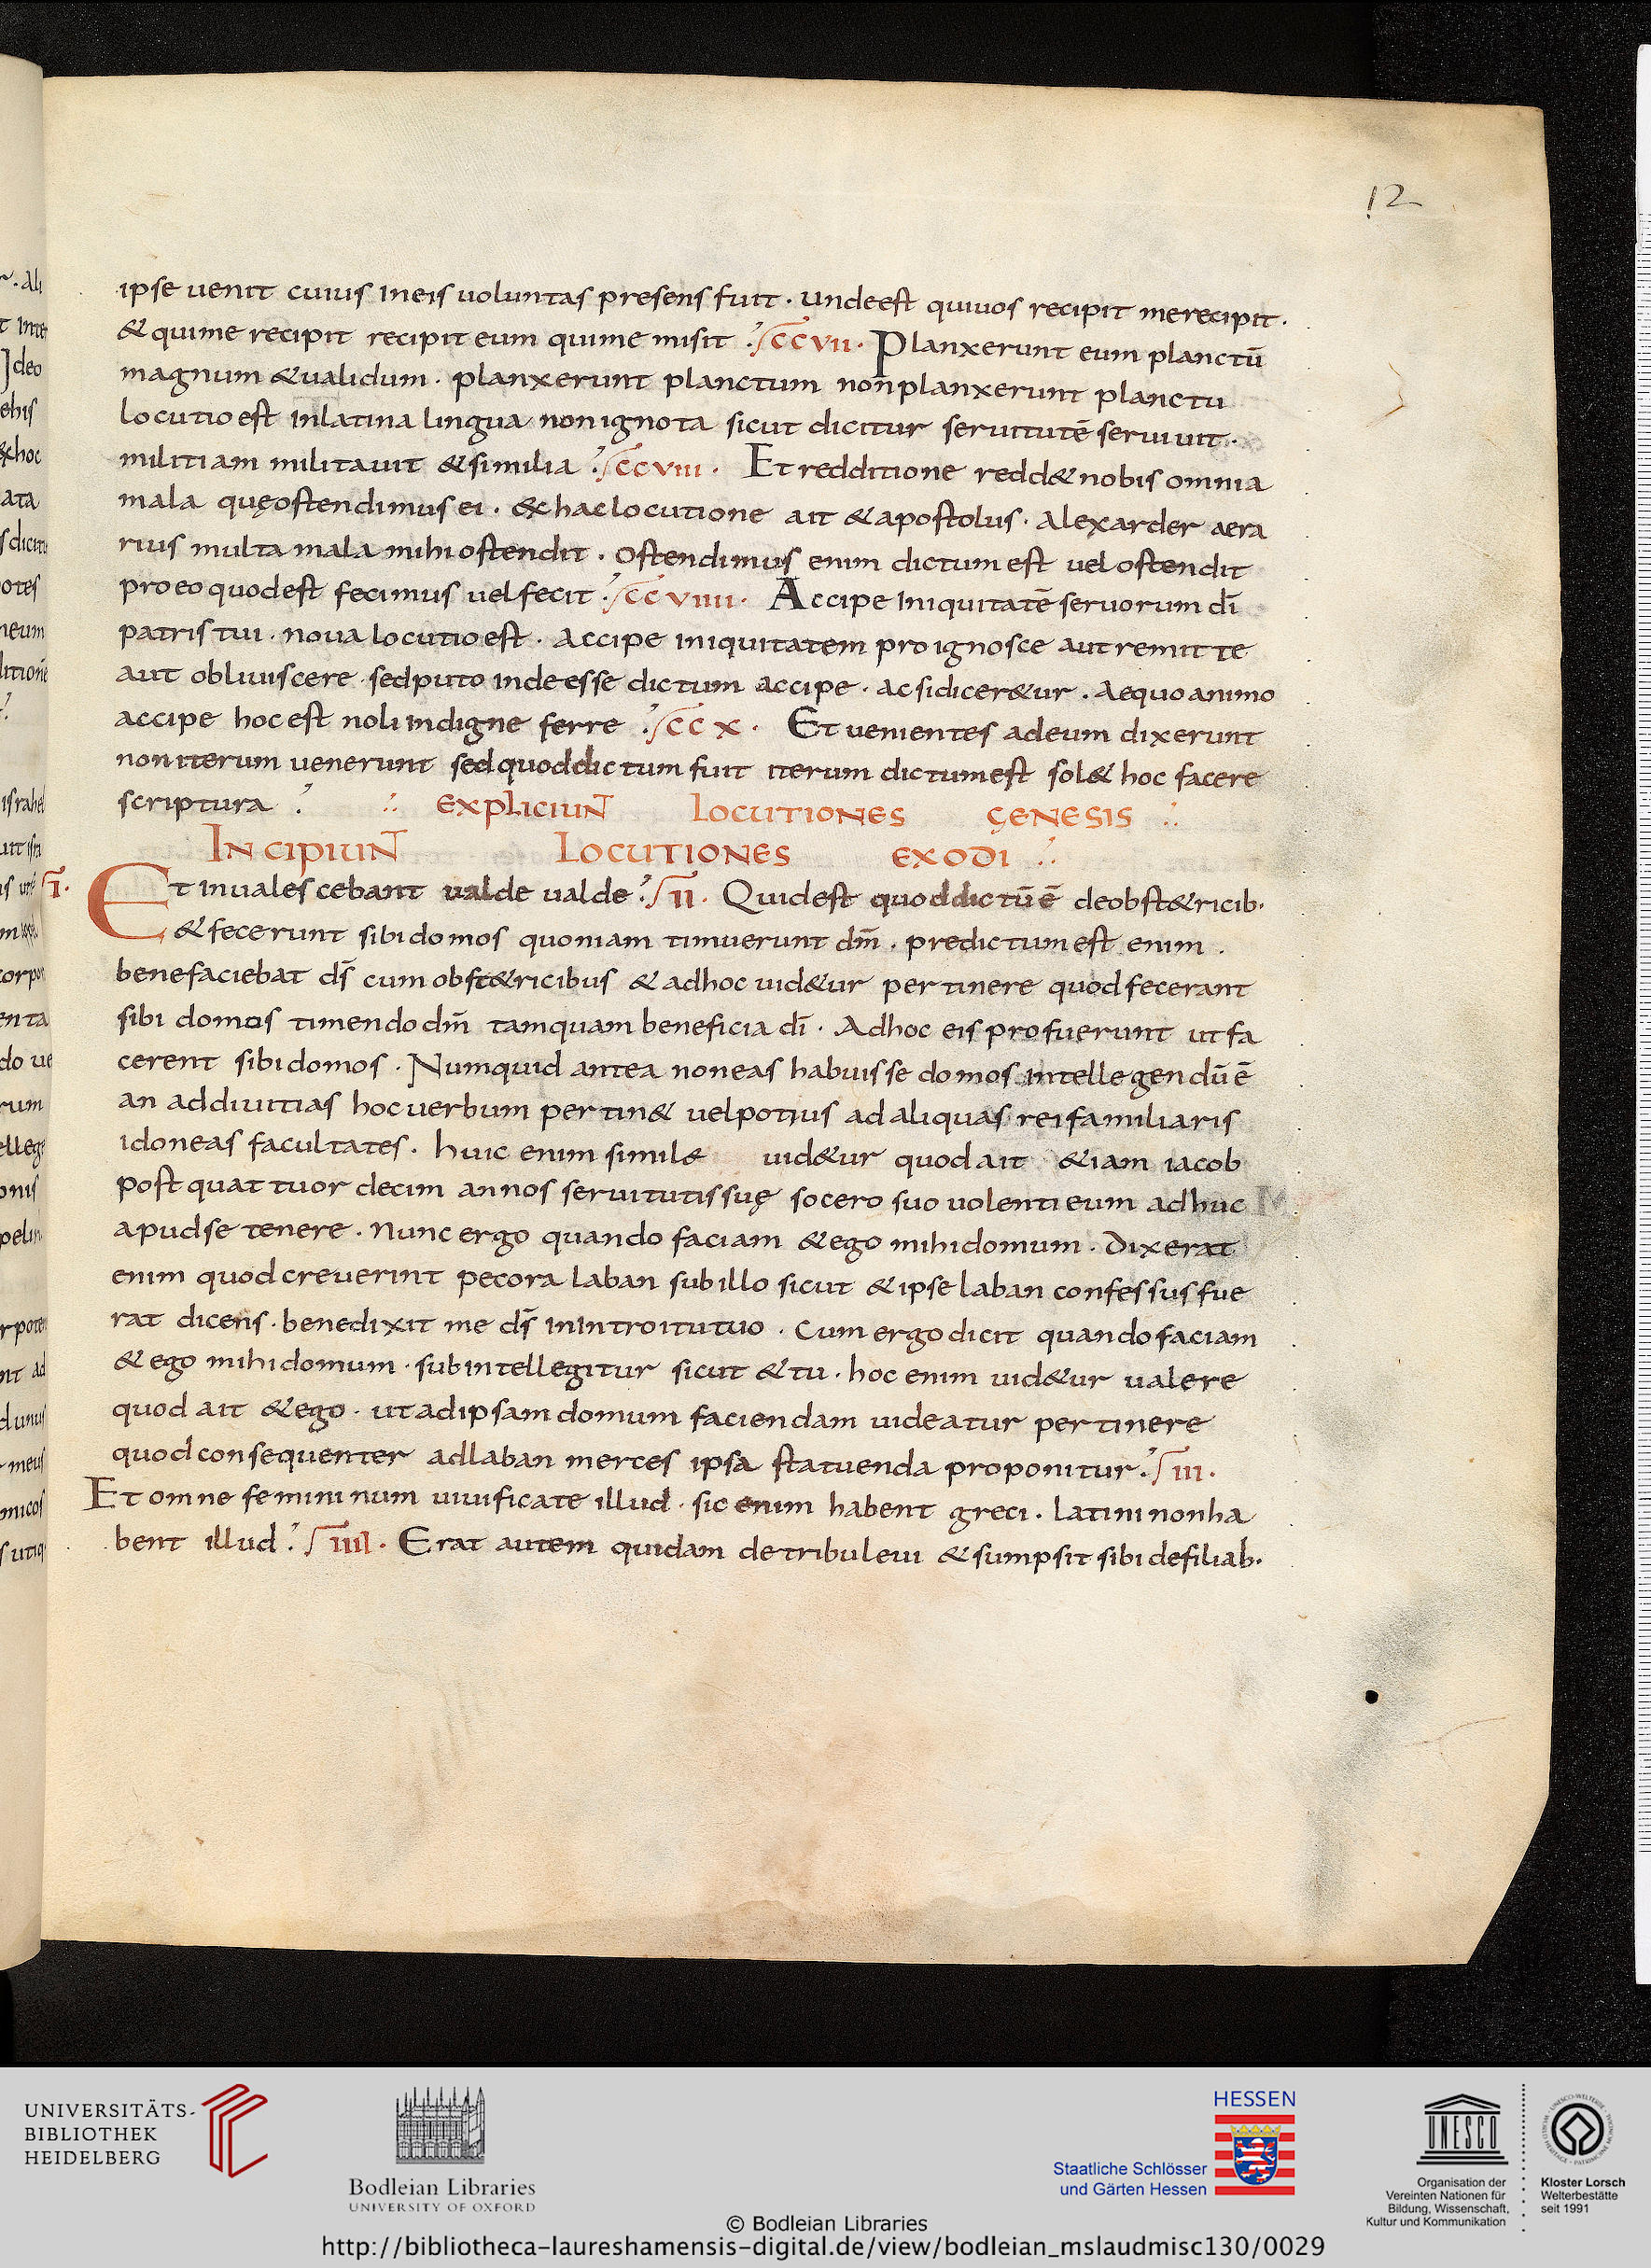 12
ipse uenit cuius ineis uoluntas presens fuit · undeest quiuos recipit merecipit ·
& quime recipit recipit eum quime misit · CCVII · Planxerunt eum planctū
magnum & ualidum · planxerunt planctum nonplanxerunt planctu
locutio est inlatina lingua non ignota sicut dicitur seruitutē seruiuit ·
militiam militauit & similia · CCVIII · Et redditione redd& nobis omnia
mala quę ostendimus ei · & hac locutione ait & apostolus · Alexarder aera
rius multa mala mihi ostendit · ostendimus enim dictum est uel ostendit
pro eo quodest fecimus uel fecit · CCVIIII · Accipe iniquitatē seruorum dī
patris tui · noua locutio est · accipe iniquitatem pro ignosce aut remitte
aut obliuiscere · sed puto inde esse dictum accipe · ac si dicer&ur · Aequo animo
accipe hoc est noli indigne ferre · CCX · Et uenientes adeum dixerunt
non iterum uenerunt sed quod dictum fuit iterum dictum est sol& hoc facere
scriptura · EXPLICIUNT LOCUTIONES GENESIS
INCIPIUNT LOCUTIONES EXODI
I · Et inualescebant ualde ualde · II · Quidest quod dictū ē de obst&ricib·
& fecerunt sibi domos quoniam timuerunt dm̄ · predictum est enim ·
benefaciebat ds̄ cum obst&ricibus & adhoc uid&ur pertinere quod fecerant
sibi domos timendo dm̄ tamquam beneficia dī · Adhoc eis profuerunt ut fa
cerent sibi domos · Numquid antea non eas habuisse domos intellegendū ē
an addiuitias hoc uerbum pertin& uel potius ad aliquas rei familiaris
idoneas facultates · huic enim simile uid&ur quod ait &iam iacob
post quattuor decim annos seruitutis suę socero suo uolenti eum adhuc
apud se tenere · Nunc ergo quando faciam & ego mihi domum · Dixerat
enim quod creuerint pecora laban sub illo sicut & ipse laban confessus fue
rat dicens · benedixit me ds̄ in introitu tuo · Cum ergo dicit quando faciam
& ego mihi domum · subintellegitur sicut & tu · hoc enim uid&ur ualere
quod ait & ego · ut ad ipsam domum faciendam uideatur pertinere
quod consequenter ad laban merces ipsa statuenda proponitur · III ·
Et omne femininum uiuificate illud · sic enim habent greci · latini non ha
bent illud · IIII · Erat autem quidam de tribu leui & sumpsit sibi de filiab·
UNIVERSITÄTS-
BIBLIOTHEK
HEIDELBERG
Bodleian Libraries
UNIVERSITY OF OXFORD
HESSEN
Staatliche Schlösser
und Gärten Hessen
UNESCO
Organisation der
Vereinten Nationen für
Bildung, Wissenschaft,
Kultur und Kommunikation
Kloster Lorsch
Welterbestätte
seit 1991
© Bodleian Libraries
http://bibliotheca-laureshamensis-digital.de/view/bodleian_mslaudmisc130/0029